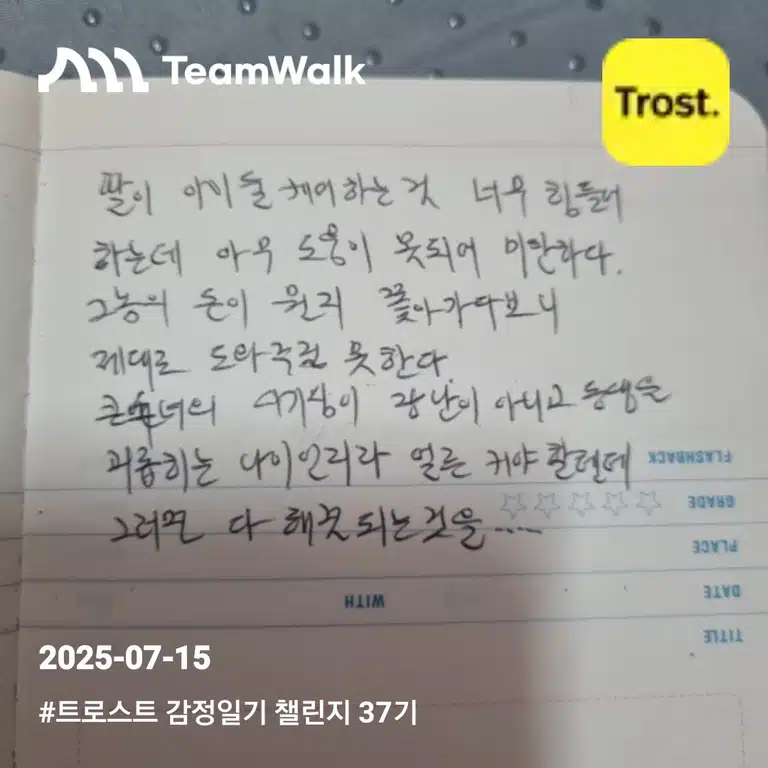 TeamWalk
Trost.
딸이 아기들 케어하는 것 너무 힘들어
하는데 아무 도움이 못되어 미안하다.
그놈의 돈이 뭔지 쫓아가다보니
제대로 도와주질 못한다.
큰손녀의 시기심이 장난이 아니고 동생을
괴롭히는 나이인지라 얼른 커야 할텐데
그러면 다 해결되는것을.....
FLASHBACK
GRADE
PLACE
DATE
WITH
TITLE
2025-07-15
#트로스트 감정일기 챌린지 37기